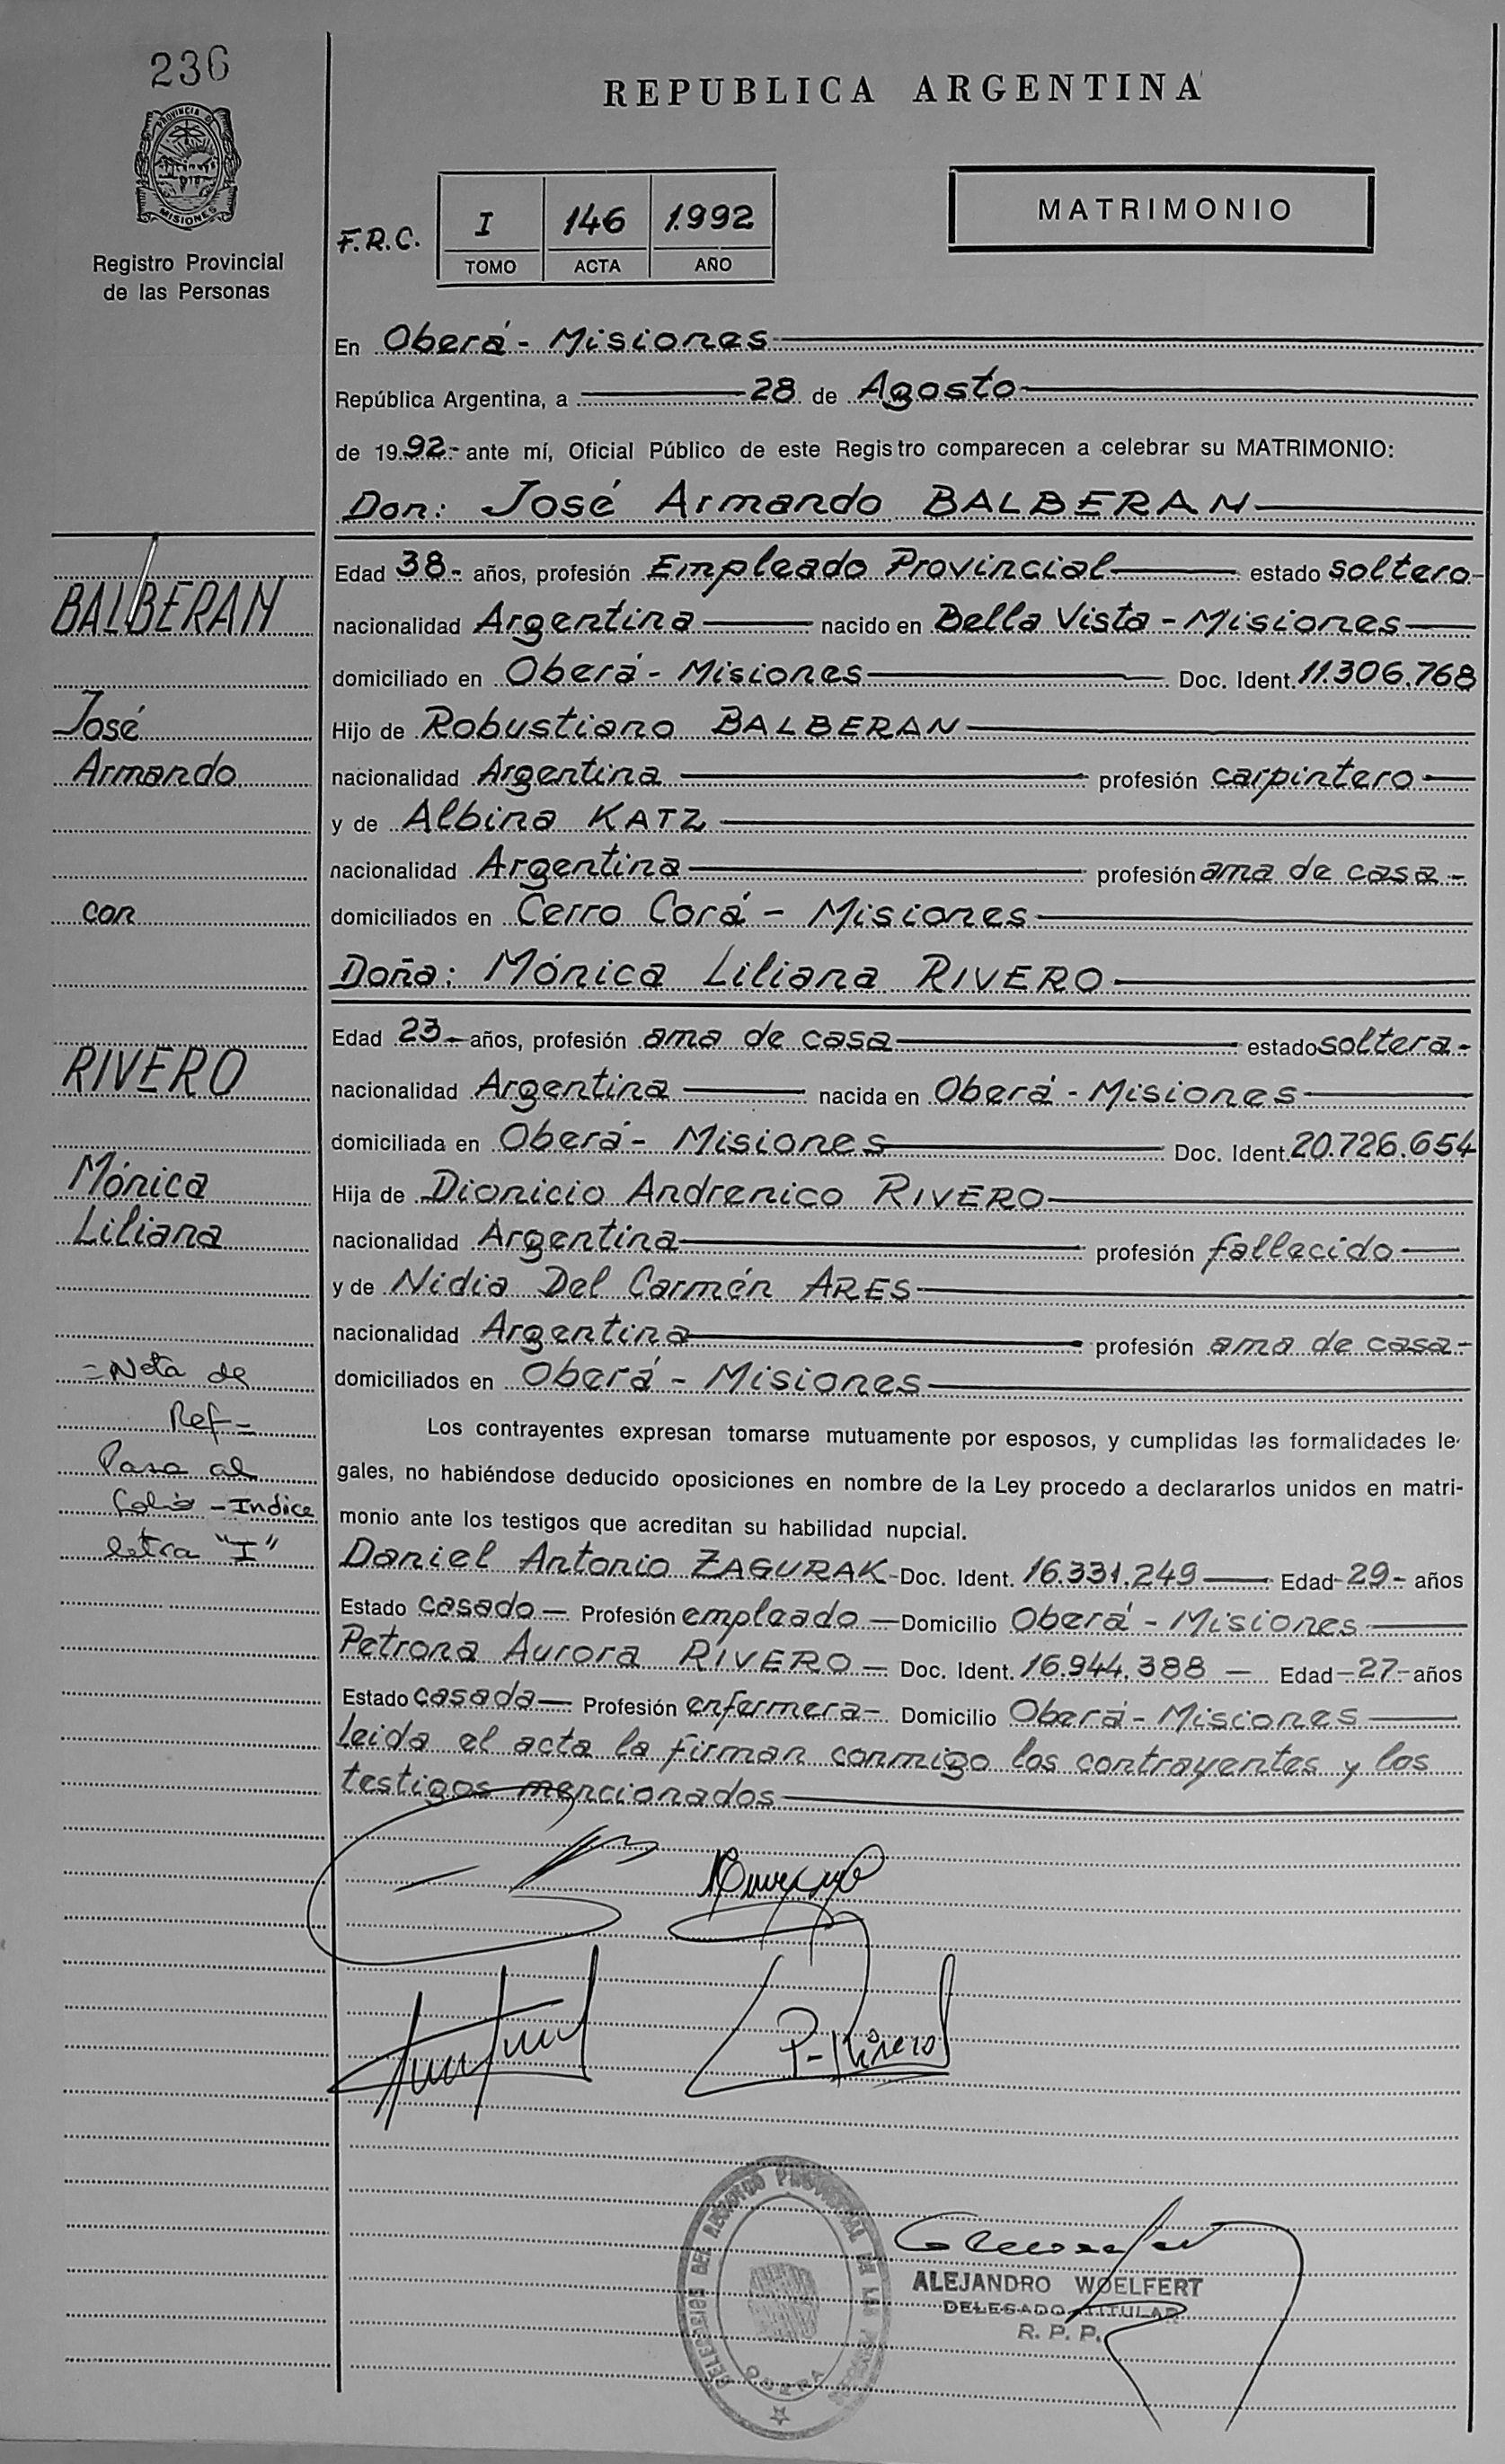 236
PROVINCIA DE
MISIONES
Registro Provincial
de las Personas
REPUBLICA ARGENTINA
MATRIMONIO
F.R.C. I 146 1.992
TOMO ACTA AÑO
En Oberá - Misiones
República Argentina, a 28 de Agosto
de 1992- ante mí, Oficial Público de este Registro comparecen a celebrar su MATRIMONIO:
Don: José Armando BALBERAN
Edad 38- años, profesión Empleado Provincial estado soltero-
nacionalidad Argentina nacido en Bella Vista - Misiones
domiciliado en Oberá - Misiones Doc. Ident. 11.306.768
Hijo de Robustiano BALBERAN
nacionalidad Argentina profesión carpintero
y de Albina KATZ
nacionalidad Argentina profesión ama de casa -
domiciliados en Cerro Corá - Misiones
Doña: Mónica Liliana RIVERO
Edad 23- años, profesión ama de casa estado soltera-
nacionalidad Argentina nacida en Oberá - Misiones
domiciliada en Oberá - Misiones Doc. Ident. 20.726.654
Hija de Dionicio Andrenico RIVERO
nacionalidad Argentina profesión fallecido
y de Nidia Del Carmén ARES
nacionalidad Argentina profesión ama de casa-
domiciliados en Oberá - Misiones
Los contrayentes expresan tomarse mutuamente por esposos, y cumplidas las formalidades le-
gales, no habiéndose deducido oposiciones en nombre de la Ley procedo a declararlos unidos en matri-
monio ante los testigos que acreditan su habilidad nupcial.
Daniel Antonio ZAGURAK- Doc. Ident. 16.331.249 Edad- 29- años
Estado casado - Profesión empleado - Domicilio Oberá - Misiones
Petrona Aurora RIVERO - Doc. Ident. 16.944.388 - Edad - 27- años
Estado casada - Profesión enfermera - Domicilio Oberá - Misiones
leida el acta la firman conmigo los contrayentes y los
testigos mencionados
BALBERAN
José
Armando
con
RIVERO
Mónica
Liliana
= Nota de
Ref =
Pasa al
Folio - Indice
letra "I"
P- Rivero
DELEGACION DEL REGISTRO PROVINCIAL DE LAS PERSONAS
OBERA
ALEJANDRO WOELFERT
DELEGADO TITULAR
R. P. P.